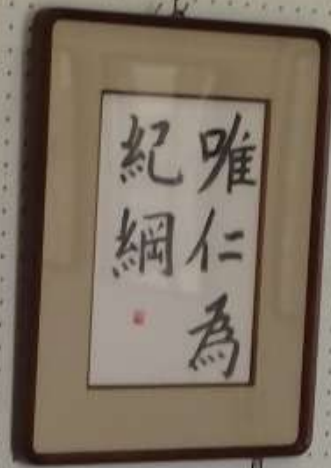 唯仁為
紀綱